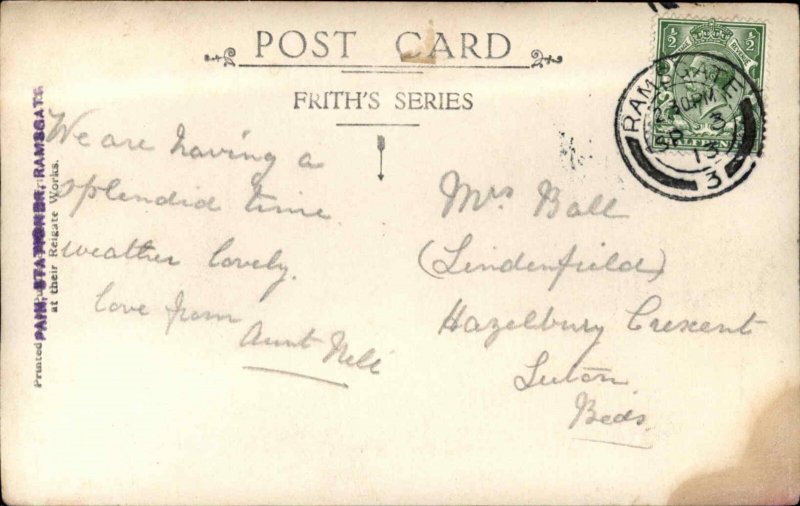 POST CARD
FRITH'S SERIES
We are having a
splendid time
weather lovely.
love from
Aunt Nell
Mrs Ball
(Lindenfield)
Hazelbury Crescent
Luton
Beds.
PAIN, STATIONER, RAMSGATE
Printed
at their Reigate Works.
RAMSGATE
2.30PM
SP 3
13
3
½ ½